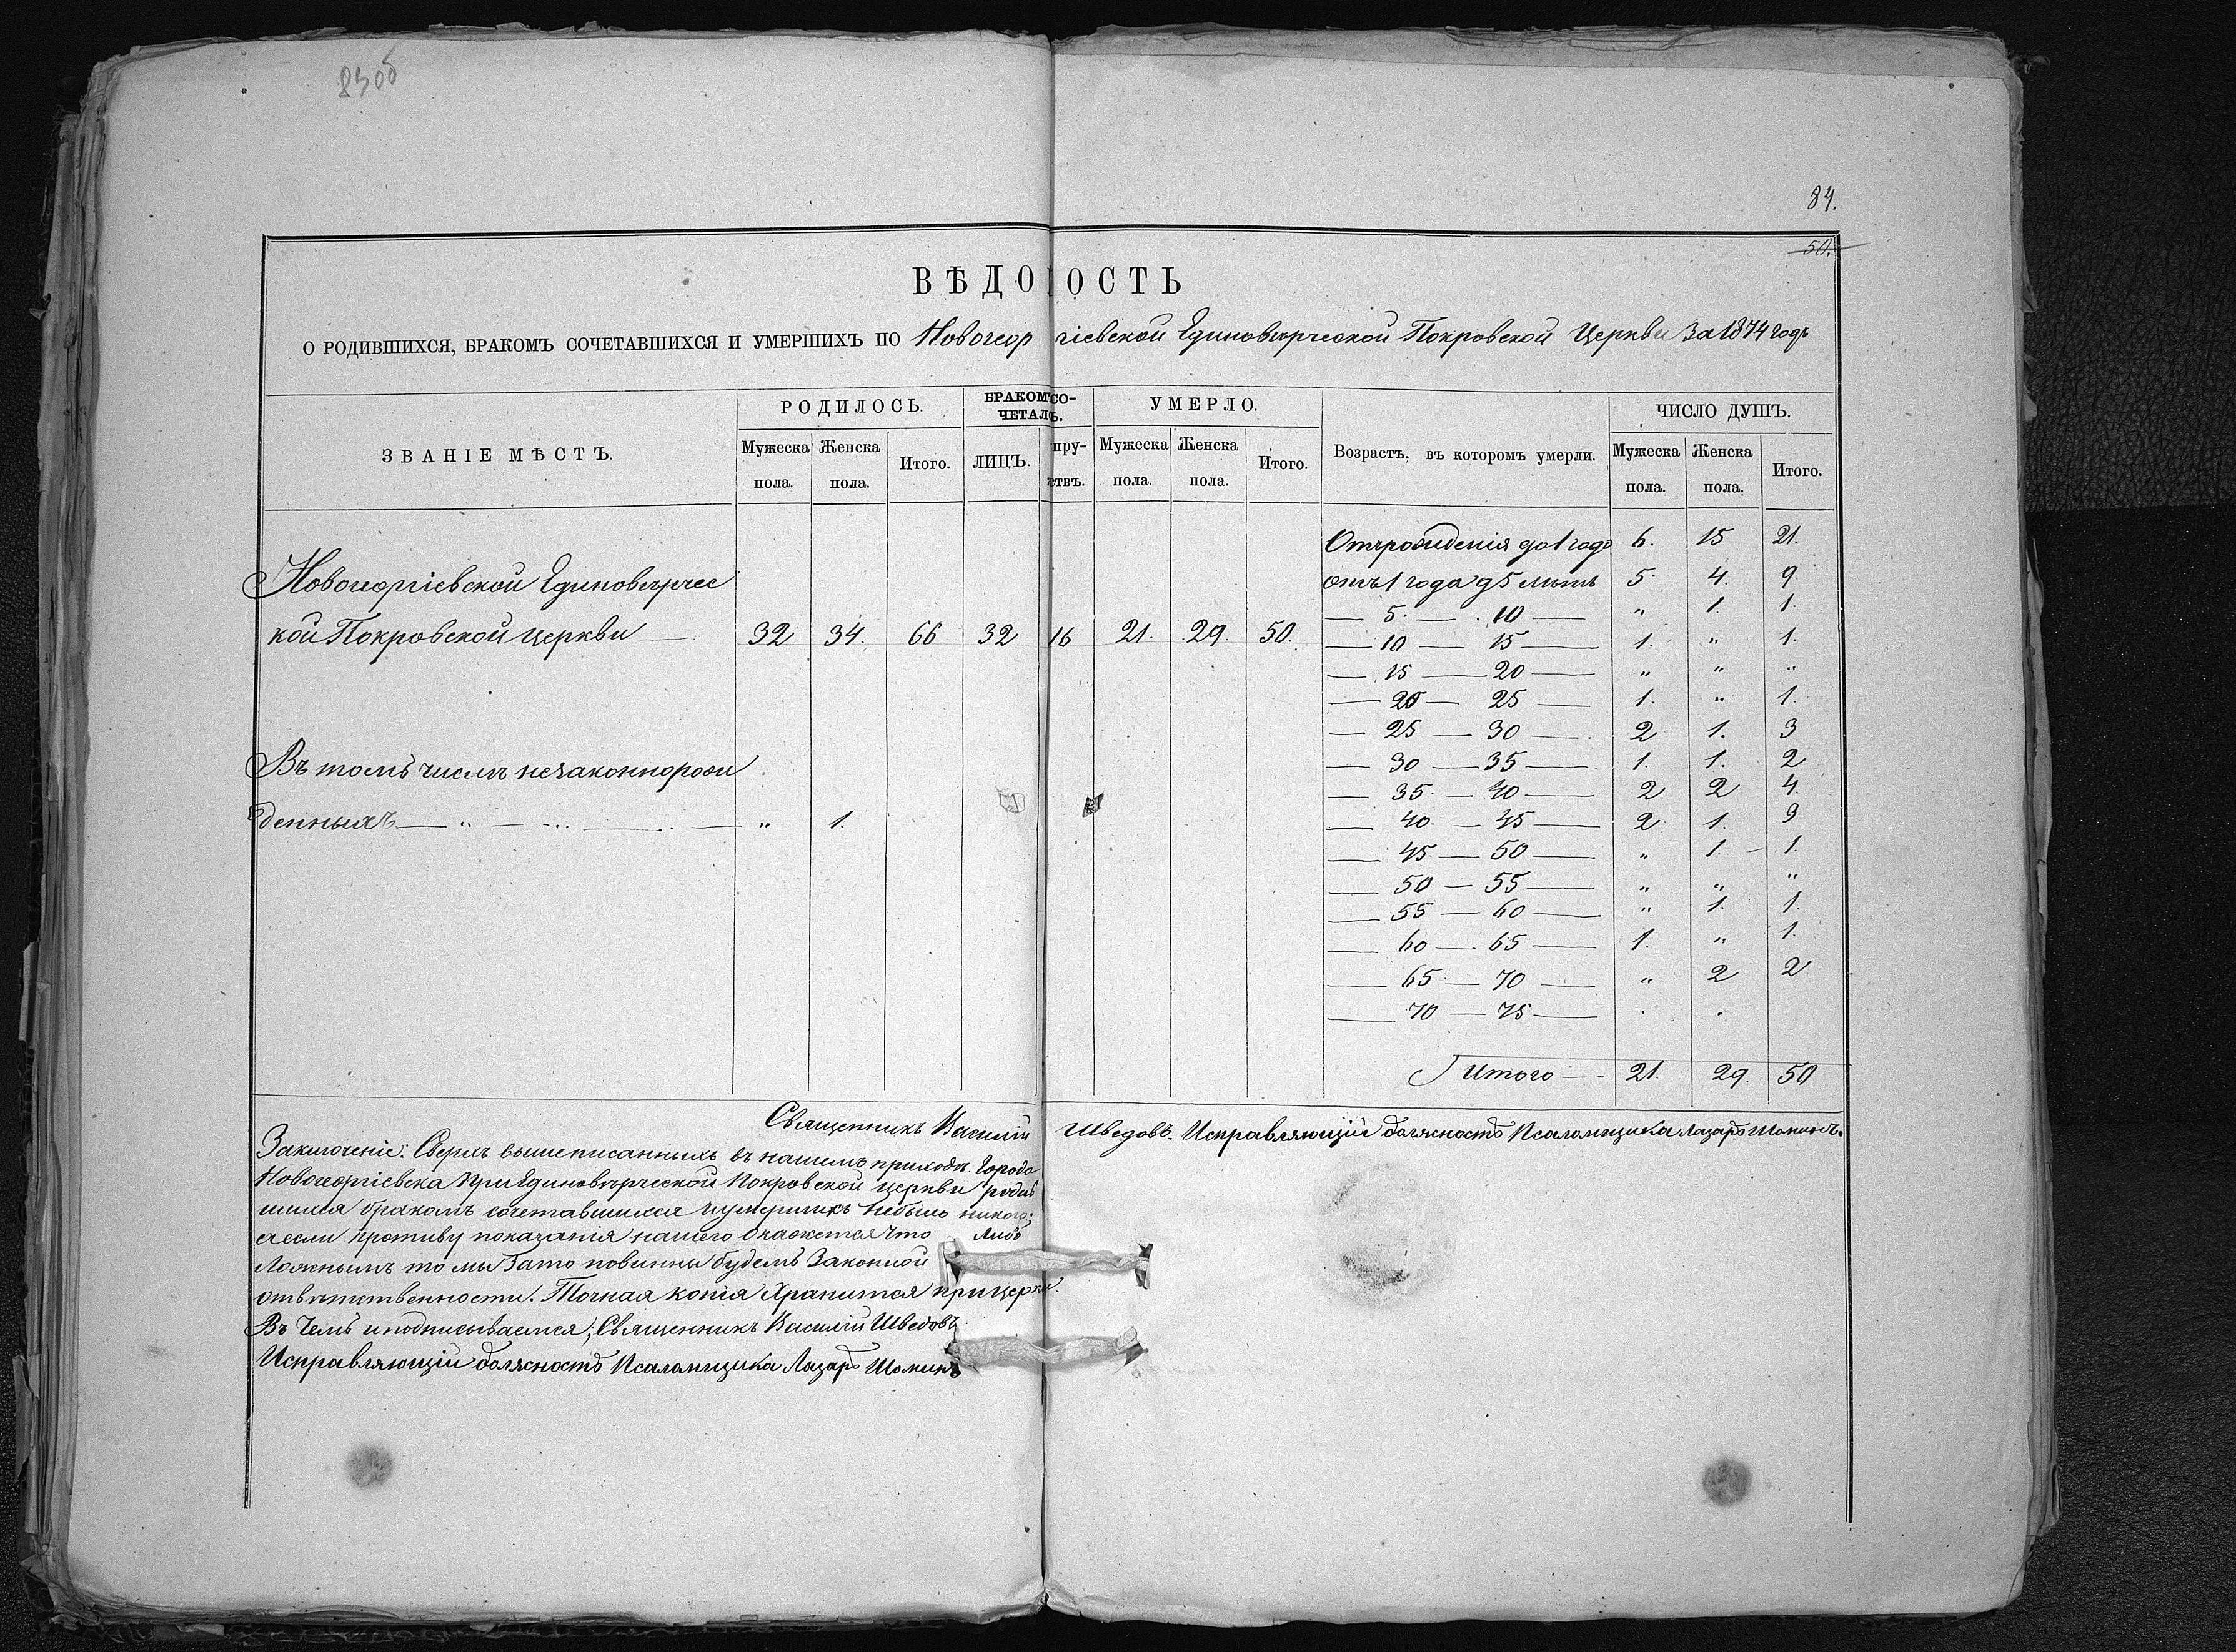 83об
84.
50.
ВѢДОМОСТЬ
О РОДИВШИХСЯ, БРАКОМЪ СОЧЕТАВШИХСЯ И УМЕРШИХЪ ПО Новогеоргіевской Единовѣрческой Покровской Церкви За 1874 годъ
ЗВАНІЕ МѢСТЪ. РОДИЛОСЬ. БРАКОМЪ СО- УМЕРЛО. Возрастъ, въ которомъ умерли. ЧИСЛО ДУШЪ.
ЧЕТАЛ.
Мужеска Женска Итого. ЛИЦЪ. пру- Мужеска Женска Итого. Мужеска Женска Итого.
пола. пола. ствъ. пола. пола. пола. пола.
Отъ рожденія до 1 года 6. 15 21.
Новогеоргіевской Единовѣрчес
отъ 1 года д 5 лѣтъ 5 4. 9
— 5. — 10 — " 1. 1.
кой Покровской церкви — 32 34. 66 32 16 21. 29. 50.
— 10 — 15 — 1. " 1.
— 15 — 20 — " " "
— 20 — 25 — 1. " 1.
— 25 — 30 — 2 1. 3
Въ томъ числѣ незаконнорож
— 30 — 35 — 1. 1. 2
— 35 — 40 — 2 2 4.
денныхъ — " — " — " — " 1.
— 40 — 45 — 2 1. 3
— 45 — 50 — " 1 — 1.
— 50 — 55 — " " "
— 55 — 60 — " 1. 1.
— 60 — 65 — 1. " 1.
— 65 — 70 — " 2 2
— 70 — 75 — . .
Итого — 21. 29. 50
Священникъ Василій Шведовъ. Исправляющій должность Псаломщика Лазарь Шоминъ.
Заключеніе: Сверхъ вышеписанныхъ въ нашемъ приходѣ Города
Новогеоргіевска При Единовѣрческой Покровской церкви родив
шихся бракомъ сочетавшихся и умершихъ небыло никого;
а если противу показанія нашего Окажется что либо
Ложнымъ то мы Зато повинны будемъ Законной
отвѣтственности. Точная копія Хранится при церкв.
Въ Чемъ и подписываемся; Священникъ Василій Шведовъ.
Исправляющій должность Псаломщика Лазарь Шоминъ